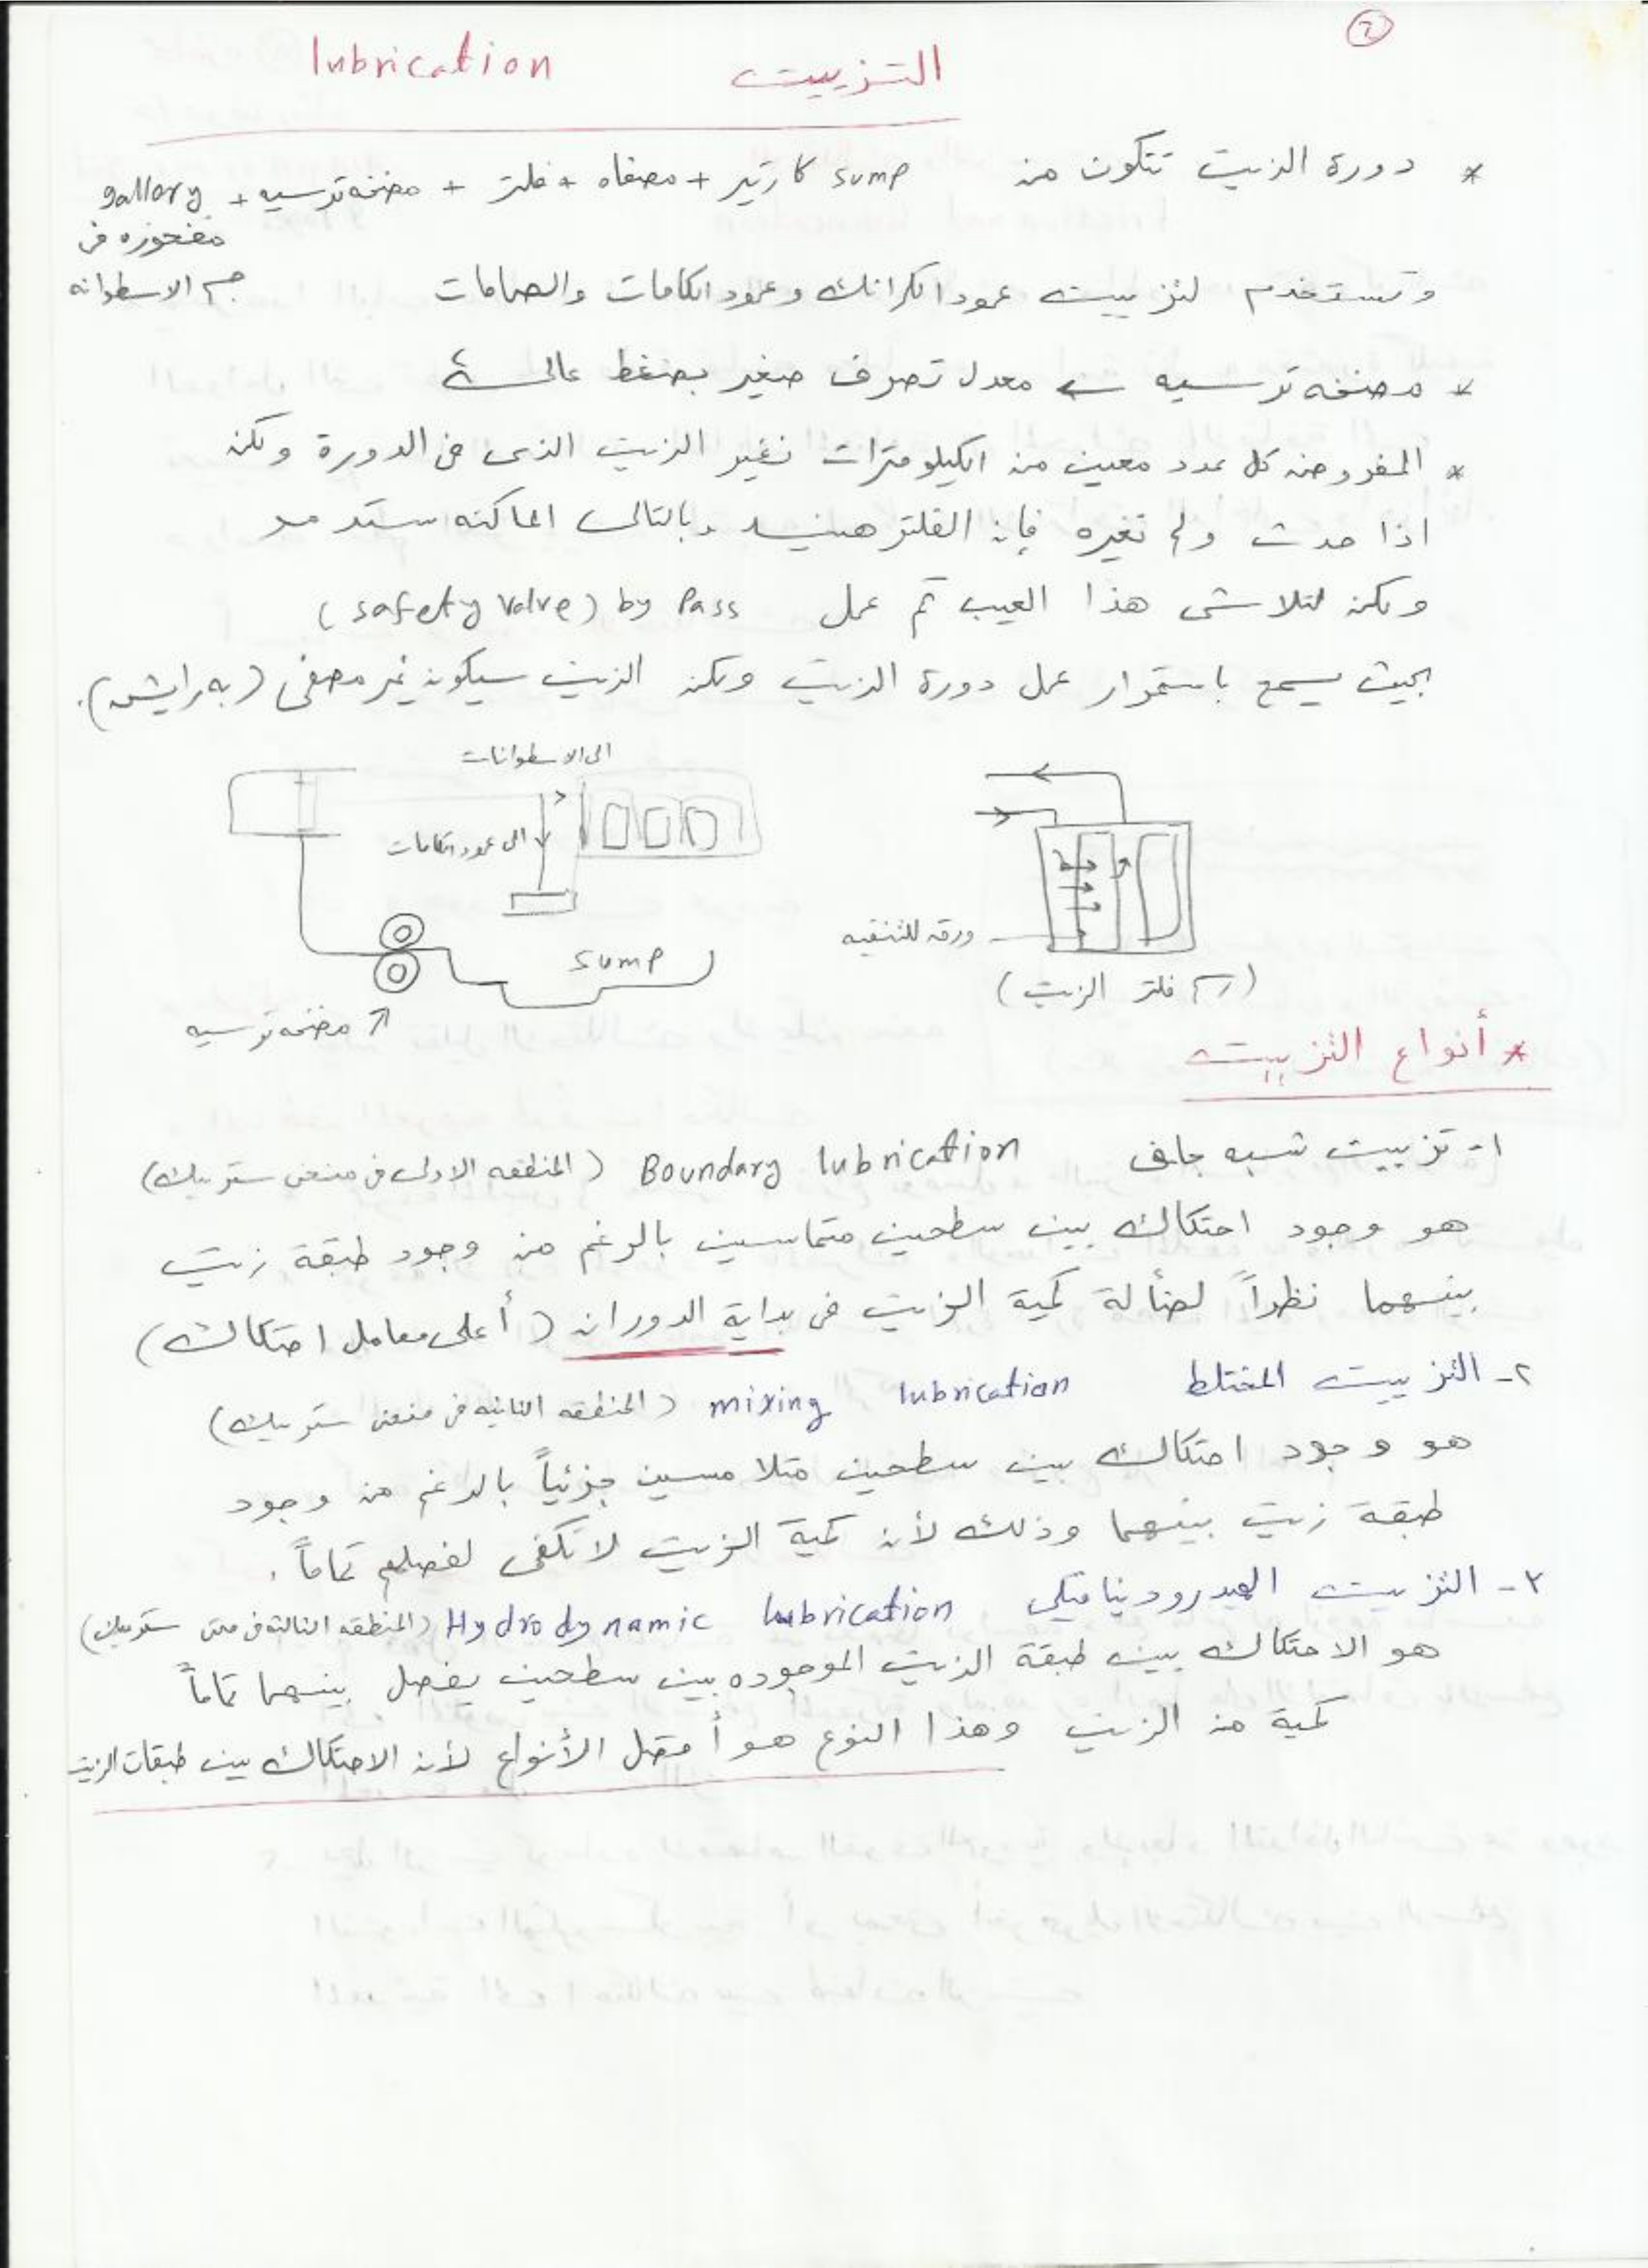 ٢
التزييت lubrication
* دورة الزيت تتكون من sump كارتير + مصفاه + فلتر + مضخه ترسيه + gallery
محفوره فى
جسم الاسطوانه
وتستخدم لتزييت عمود الكرانك وعمود الكامات والصمامات
* مضخه ترسيه ← معدل تصرف صغير بضغط عالى
* المفروض كل عدد معين من الكيلومترات نغير الزيت الذى فى الدورة ولكن
اذا حدث ولم نغيره فإن الفلتر هيتسد وبالتالى الماكنه ستدمر
ولكن لتلاشى هذا العيب تم عمل by Pass (safety valve)
بحيث يسمح باستمرار عمل دورة الزيت ولكن الزيت سيكون غير مصفى (به رايش).
الى الاسطوانات
الى عمود الكامات
sump
مضخه ترسيه
ورقه للتنقيه
(رسم فلتر الزيت)
* أنواع التزييت
١- تزييت شبه جاف Boundary lubrication (المنطقه الاولى فى منحنى ستريبك)
هو وجود احتكاك بين سطحين متماسين بالرغم من وجود طبقة زيت
بينهما نظراً لضألة كمية الزيت فى بداية الدوران (أعلى معامل احتكاك)
٢- التزييت المختلط mixing lubrication (المنطقه الثانيه فى منحنى ستريبك)
هو وجود احتكاك بين سطحين متلامسين جزئياً بالرغم من وجود
طبقة زيت بينهما وذلك لأن كمية الزيت لا تكفى لفصلهم تماماً.
٣- التزييت الهيدروديناميكى Hydrodynamic lubrication (المنطقه الثالثه فى منحنى ستريبك)
هو الاحتكاك بين طبقة الزيت الموجوده بين سطحين يفصل بينهما تماماً
كمية من الزيت وهذا النوع هو أفضل الأنواع لأن الاحتكاك بين طبقات الزيت